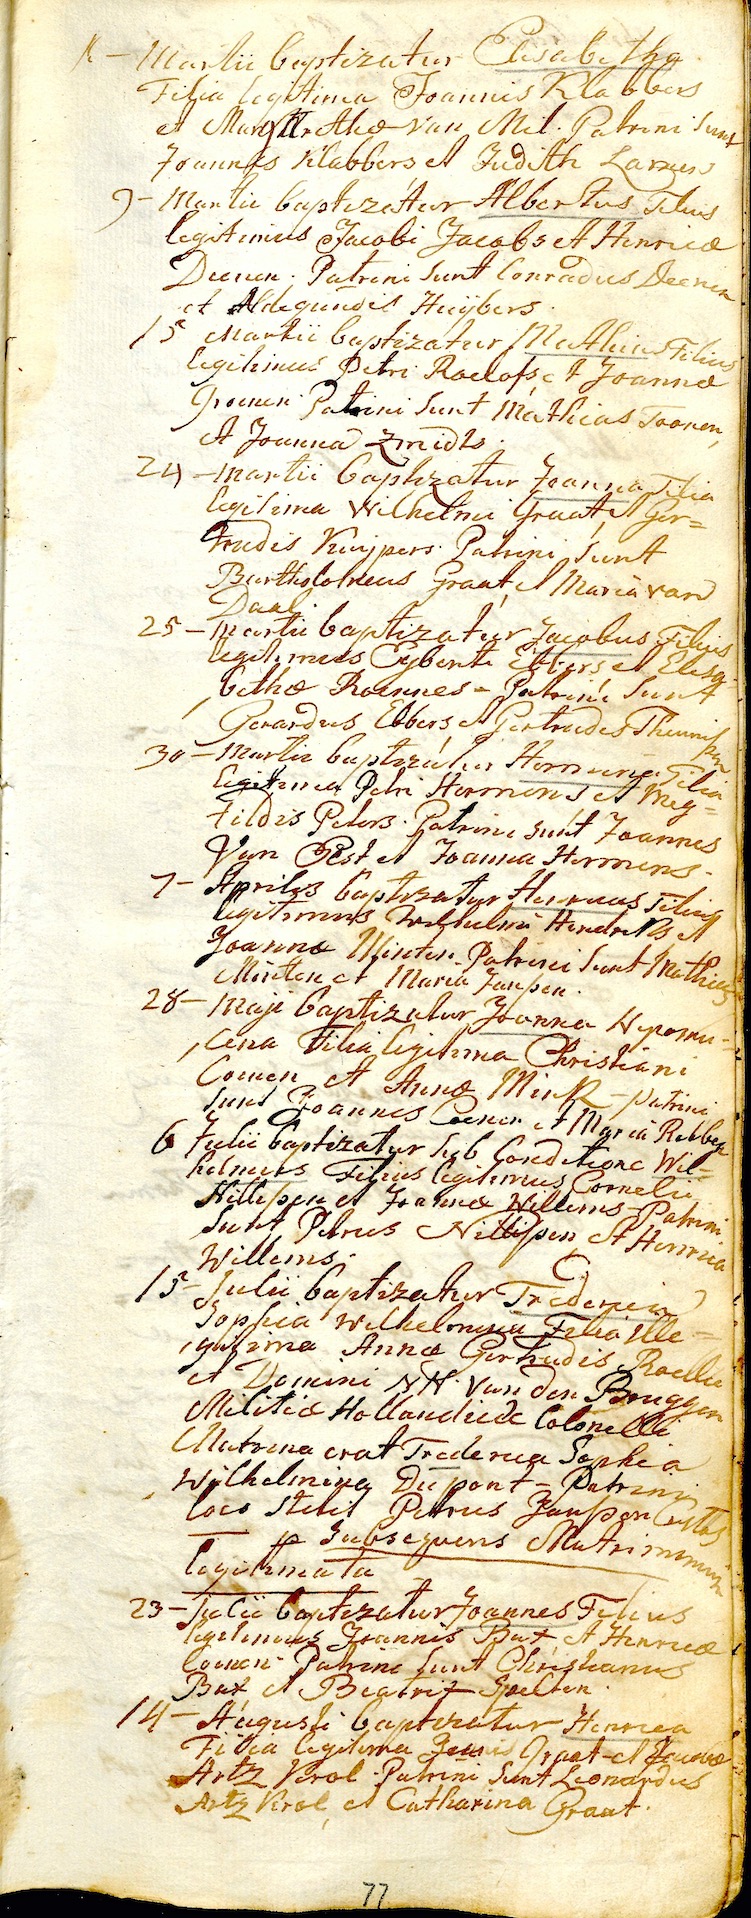 Martii baptizatur Elisabetha
Filia legitima Joannis Klabbers
et Margarethae van Mil. Patrini sunt
Joannes Klabbers et Judith
9 - Martii baptizatur Albertus Filius
legitimus Jacobi Jacobs et Henricae
Deenen. Patrini sunt Conradus Deenen
et Aldegundis Huijbers.
15 Martii baptizatur Mathias Filius
legitimus Petri Roelofs, et Joannae
Groenen. Patrini sunt Mathias Toonen,
et Joanna Zmidts.
24 - Martii baptizatur Joanna Filia
legitima Wilhelmi Graat, et Ger=
trudis Kuijpers. Patrini sunt
Bartholomeus Graat, et Maria van
Daal.
25 - Martii baptizatur Jacobus Filius
legitimus Egberti Ebbers et Elisa
bethae Roennes - Patrini sunt
Gerardus Ebbers, et Gertrudes Theunissen
30 - Martii baptizatur Hermina Filia
legitima Petri Hermens et Meg=
tildis Peters. Patrini sunt Joannes
Van Gest et Joanna Hermens.
7 - Aprilis baptizatur Henricus Filius
legitimus Wilhelmi Hendriks et
Joannae Minten. Patrini sunt Mathias
Minten et Maria Janssen.
28 - Maji baptizatur Joanna Nepomu=
cena Filia legitima Christiani
Coenen et Annae Mink - patrini
sunt Joannes Coenen et Maria Robben
6 Julii baptizatur sub conditione Wil=
helmus Filius legitimus Cornelii
Nillissen et Joannae Willems - Patrini
sunt Petrus Nillissen, et Henrica
Willems.
15 - Julii baptizatur Frederica
Sophia Wilhelmina Filia ille=
gitima Annae Gertrudis Roelle
et Domini NN. Van den Bruggen
Militiae Hollandicae Colonelli
Matrina erat Frederica Sophia
Wilhelmina Dupont - Patrini
loco stetit Petrus Janssen Custos
p subsequens Matrimonium
legitimata
23 - Julii baptizatur Joannes Filius
legitimus Joannis Bax et Henricae
Coenen. Patrini sunt Christianus
Bax et Beatrix Speeten.
14 - Augusti baptizatur Henrica
Filia legitima Graat et Jacobae
Artz Verol. Patrini sunt Leonardus
Artz Verol, et Catharina Graat.
77